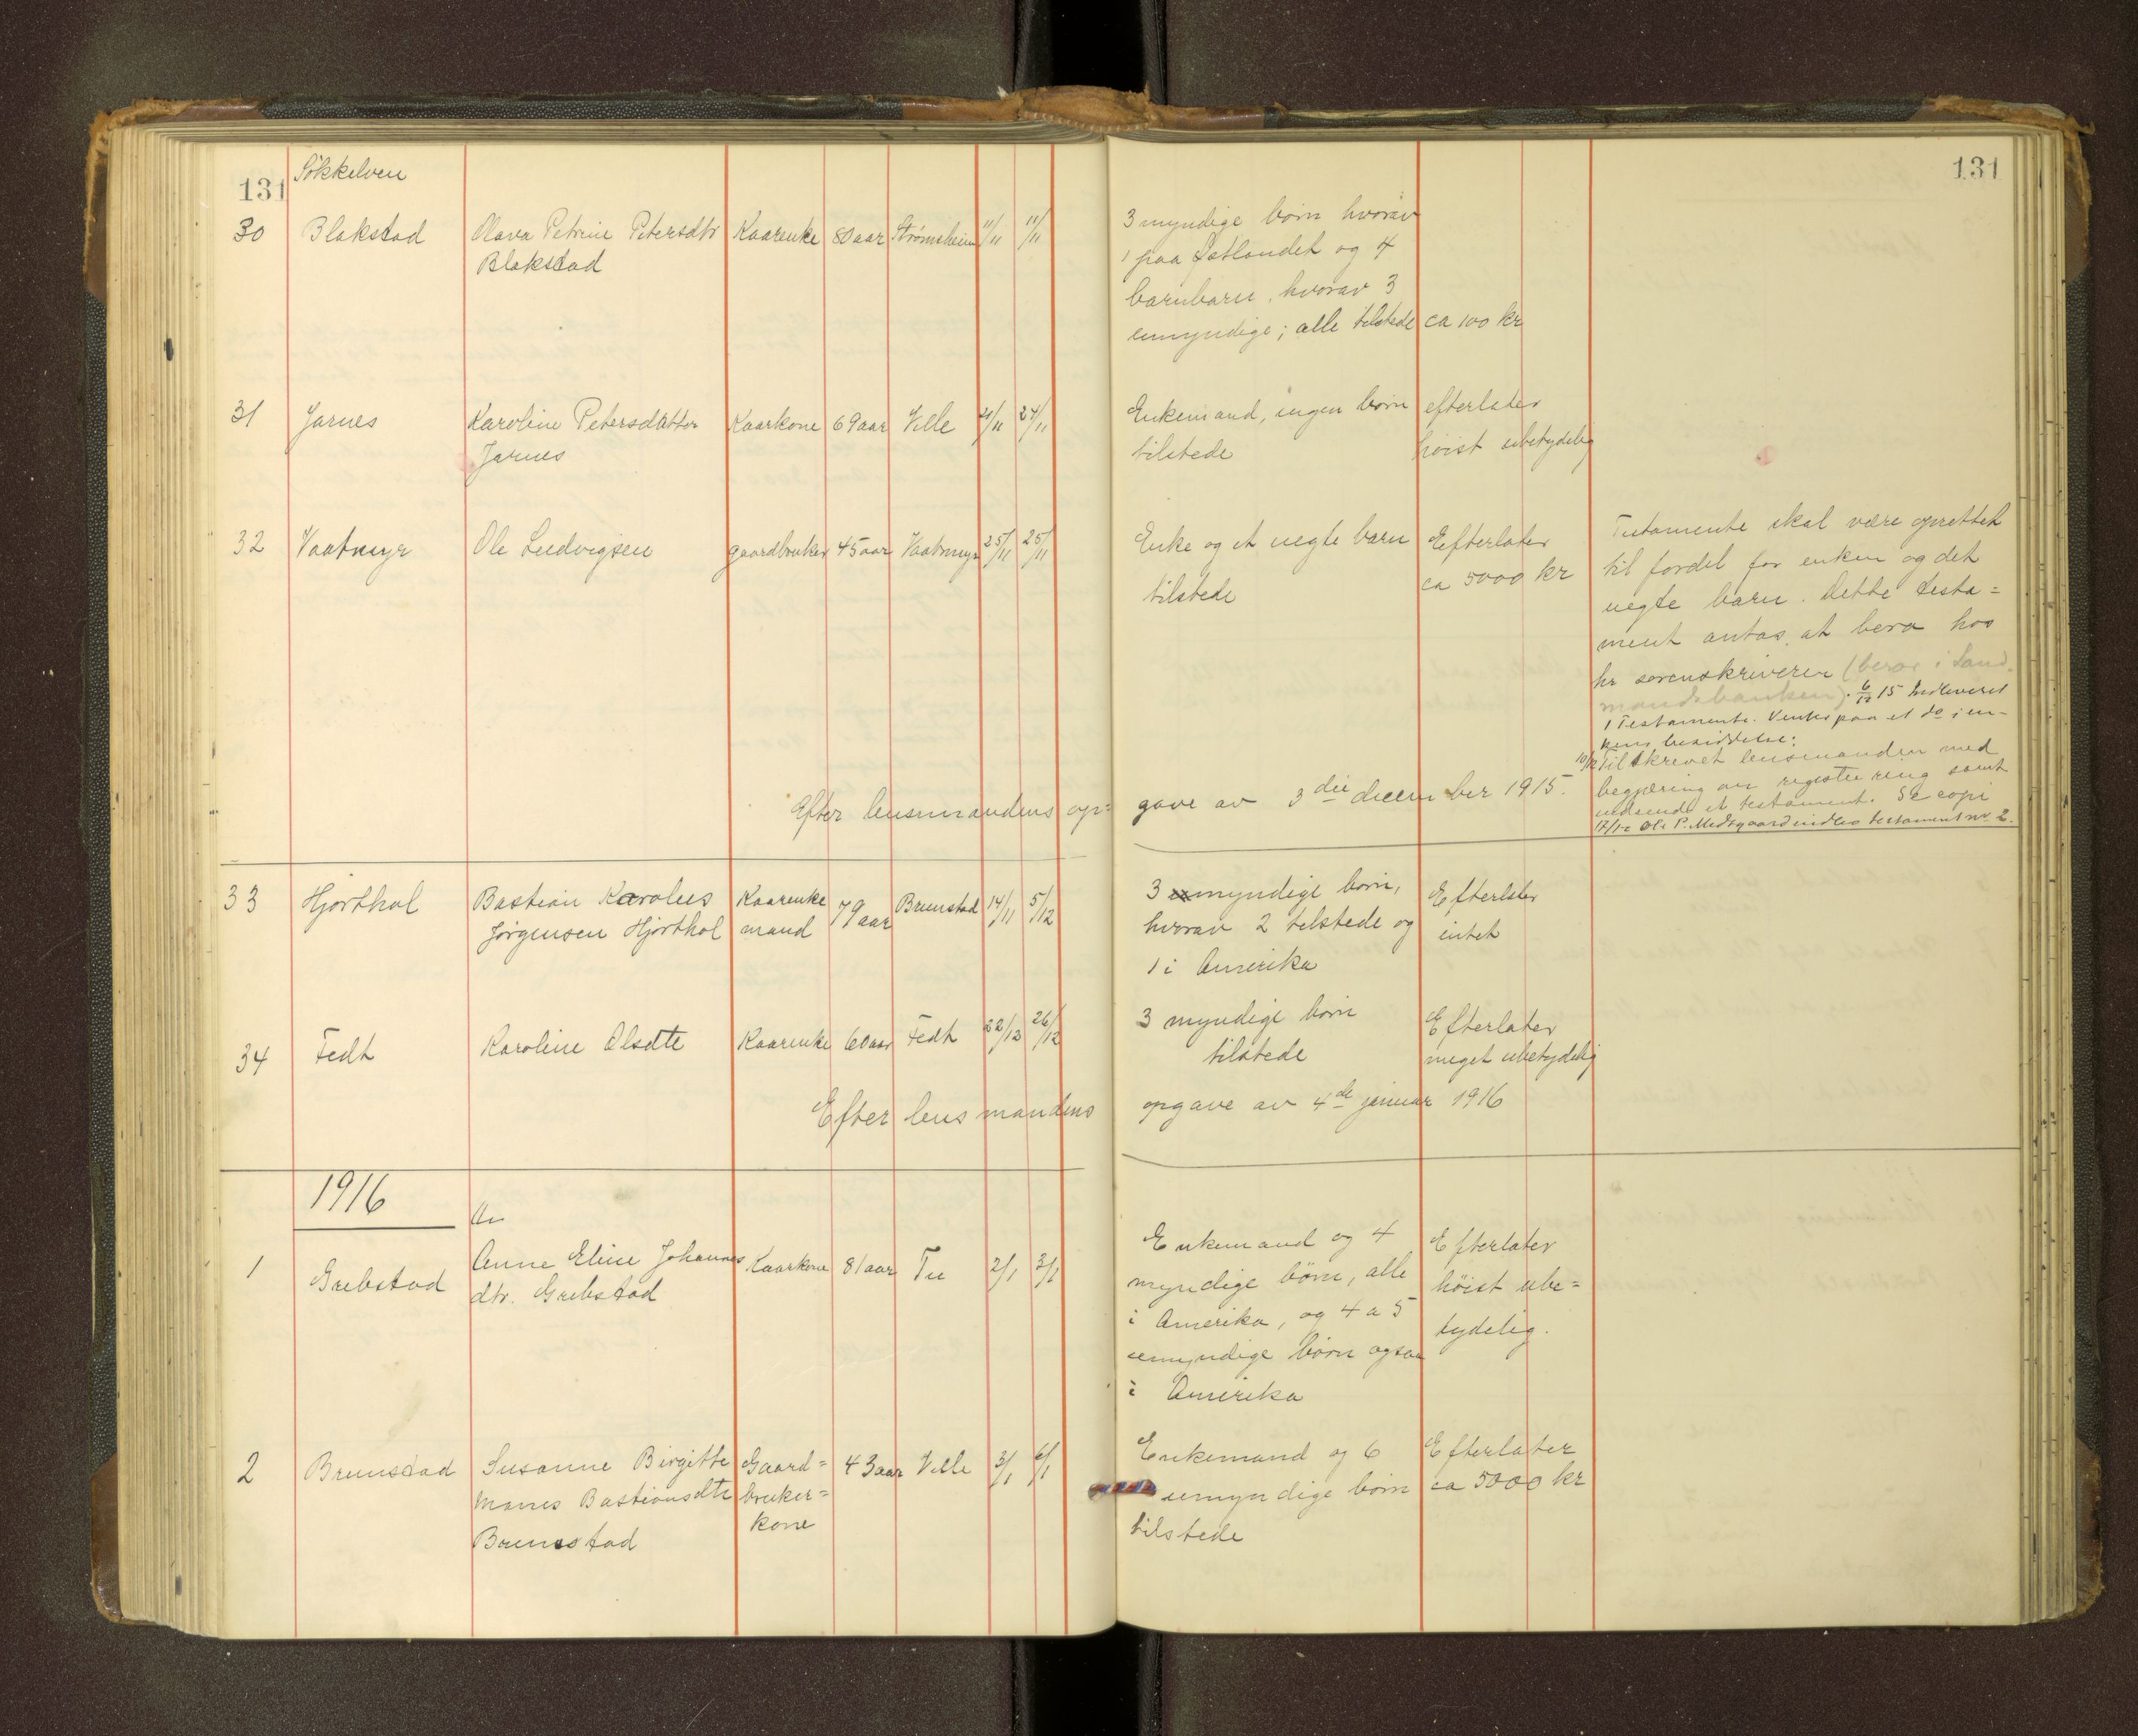 131
Søkkelven
131
30 Blakstad Olava Petrine Petersdtr Kaarenke 80 aar Strømsheim 11/11 11/11 3 myndige børn hvorav
Blakstad
1 paa Østlandet og 4
barnbarn, hvorav 3
umyndige; alle tilstede ca 100 kr
31 Jarnes Karoline Petersdatter Kaarkone 69 aar Velle 21/11 24/11 Enkemand, ingen børn efterlater
Jarnes tilstede høist ubetydelig
32 Vaatmyr Ole Ludvigsen gaardbruker 45 aar Vaatmyr 25/11 25/11 Enke og et uegte barn Efterlater
tilstede ca 5000 kr
Testamente skal være oprettet
til fordel for enken og det
uegte barn. Dette testa=
ment antas at bero hos
hr sorenskriveren (beror i Land
mandsbanken). 6/12 15 Indleveret
1 Testamente. Ventes paa et do i en-
kens besiddelse.
10/12 Tilskrevet lensmanden med
begjæring om registrering samt
indsende et testament. Se copi
17/12 Ole P. Midtgaard indlev testament nr 2.
Efter lensmandens op= gave av 3die december 1915.
33 Hjorthol Bastian Karolus Kaarenke 79 aar Brunstad 14/11 5/12 3 myndige børn, Efterlater
Jørgensen Hjorthol mand hvorav 2 tilstede og intet
1 i Amerika
34 Fedt Karoline Olsdtr Kaarenke 60 aar Fedt 22/12 26/12 3 myndige børn Efterlater
tilstede meget ubetydelig
Efter lensmandens opgave av 4de januar 1916
1916
An
1 Grebstad Anne Eline Johannes Kaarkone 81 aar Tu 2/1 3/1 Enkemand og 4 Efterlater
dtr. Grebstad myndige børn, alle høist ube=
i Amerika, og 4 a 5 tydelig.
umyndige børn ogsaa
i Amerika
2 Brunstad Susanne Birgitte Gaard= 43 aar Velle 3/1 6/1 Enkemand og 6 Efterlater
Bastiansdtr bruker= umyndige børn ca 5000 kr
Brunstad kone tilstede